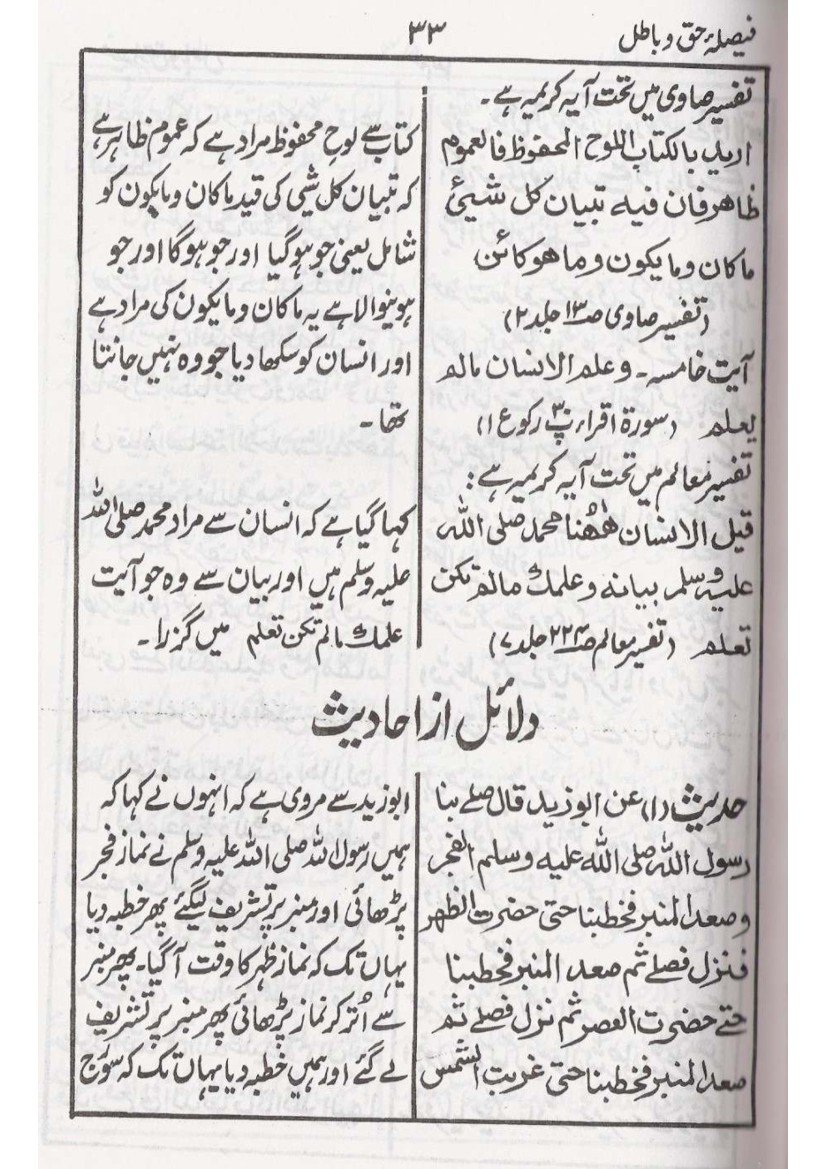 فیصلۂ حق و باطل
۳۳
تفسیر صاوی میں تحت آیہ کریمیہ ہے۔
ارید بالکتاب اللوح المحفوظ فالعموم
ظاھر فان فیہ تبیان کل شیئ
ماکان ومایکون وما ھو کائن
(تفسیر صاوی صـ۱۳ جلد ۲)
آیت خامسہ۔ وعلم الانسان مالم
یعلم (سورۃ اقراء پ۳۰ رکوع ۱)
تفسیر معالم میں تحت آیہ کریمیہ ہے:
قیل الانسان ھٰھنا محمد صلی اللہ
علیہ وسلم بیانہ وعلمک مالم تکن
تعلم (تفسیر معالم صـ۲۲۴ جلد ۷)
کتاب سے لوح محفوظ مراد ہے کہ عموم ظاہر ہے
کہ تبیان کل شیٔ کی قید ماکان ومایکون کو
شامل یعنی جو ہو گیا اور جو ہو گا اور جو
ہونیوالا ہے یہ ماکان ومایکون کی مراد ہے
اور انسان کو سکھا دیا جو وہ نہیں جانتا
تھا۔
کہا گیا ہے کہ انسان سے مراد محمد صلی اللہ
علیہ وسلم ہیں اور بیان سے وہ جو آیت
علمک مالم تکن تعلم میں گزرا۔
دلائل از احادیث
حدیث (۱) عن ابوزید قال صلے بنا
رسول اللہ صلی اللہ علیہ وسلم الفجر
وصعد المنبر فخطبنا حتی حضرت الظھر
فنزل فصلے ثم صعد المنبر فخطبنا
حتے حضرت العصر ثم نزل فصلے ثم
صعد المنبر فخطبنا حتی غربت الشمس
ابوزید سے مروی ہے کہ انہوں نے کہا کہ
ہمیں رسول اللہ صلی اللہ علیہ وسلم نے نماز فجر
پڑھائی اور منبر پر تشریف لیگئے پھر خطبہ دیا
یہاں تک کہ نماز ظہر کا وقت آگیا۔ پھر منبر
سے اُتر کر نماز پڑھائی پھر منبر پر تشریف
لے گئے اور ہمیں خطبہ دیا یہاں تک کہ سورج